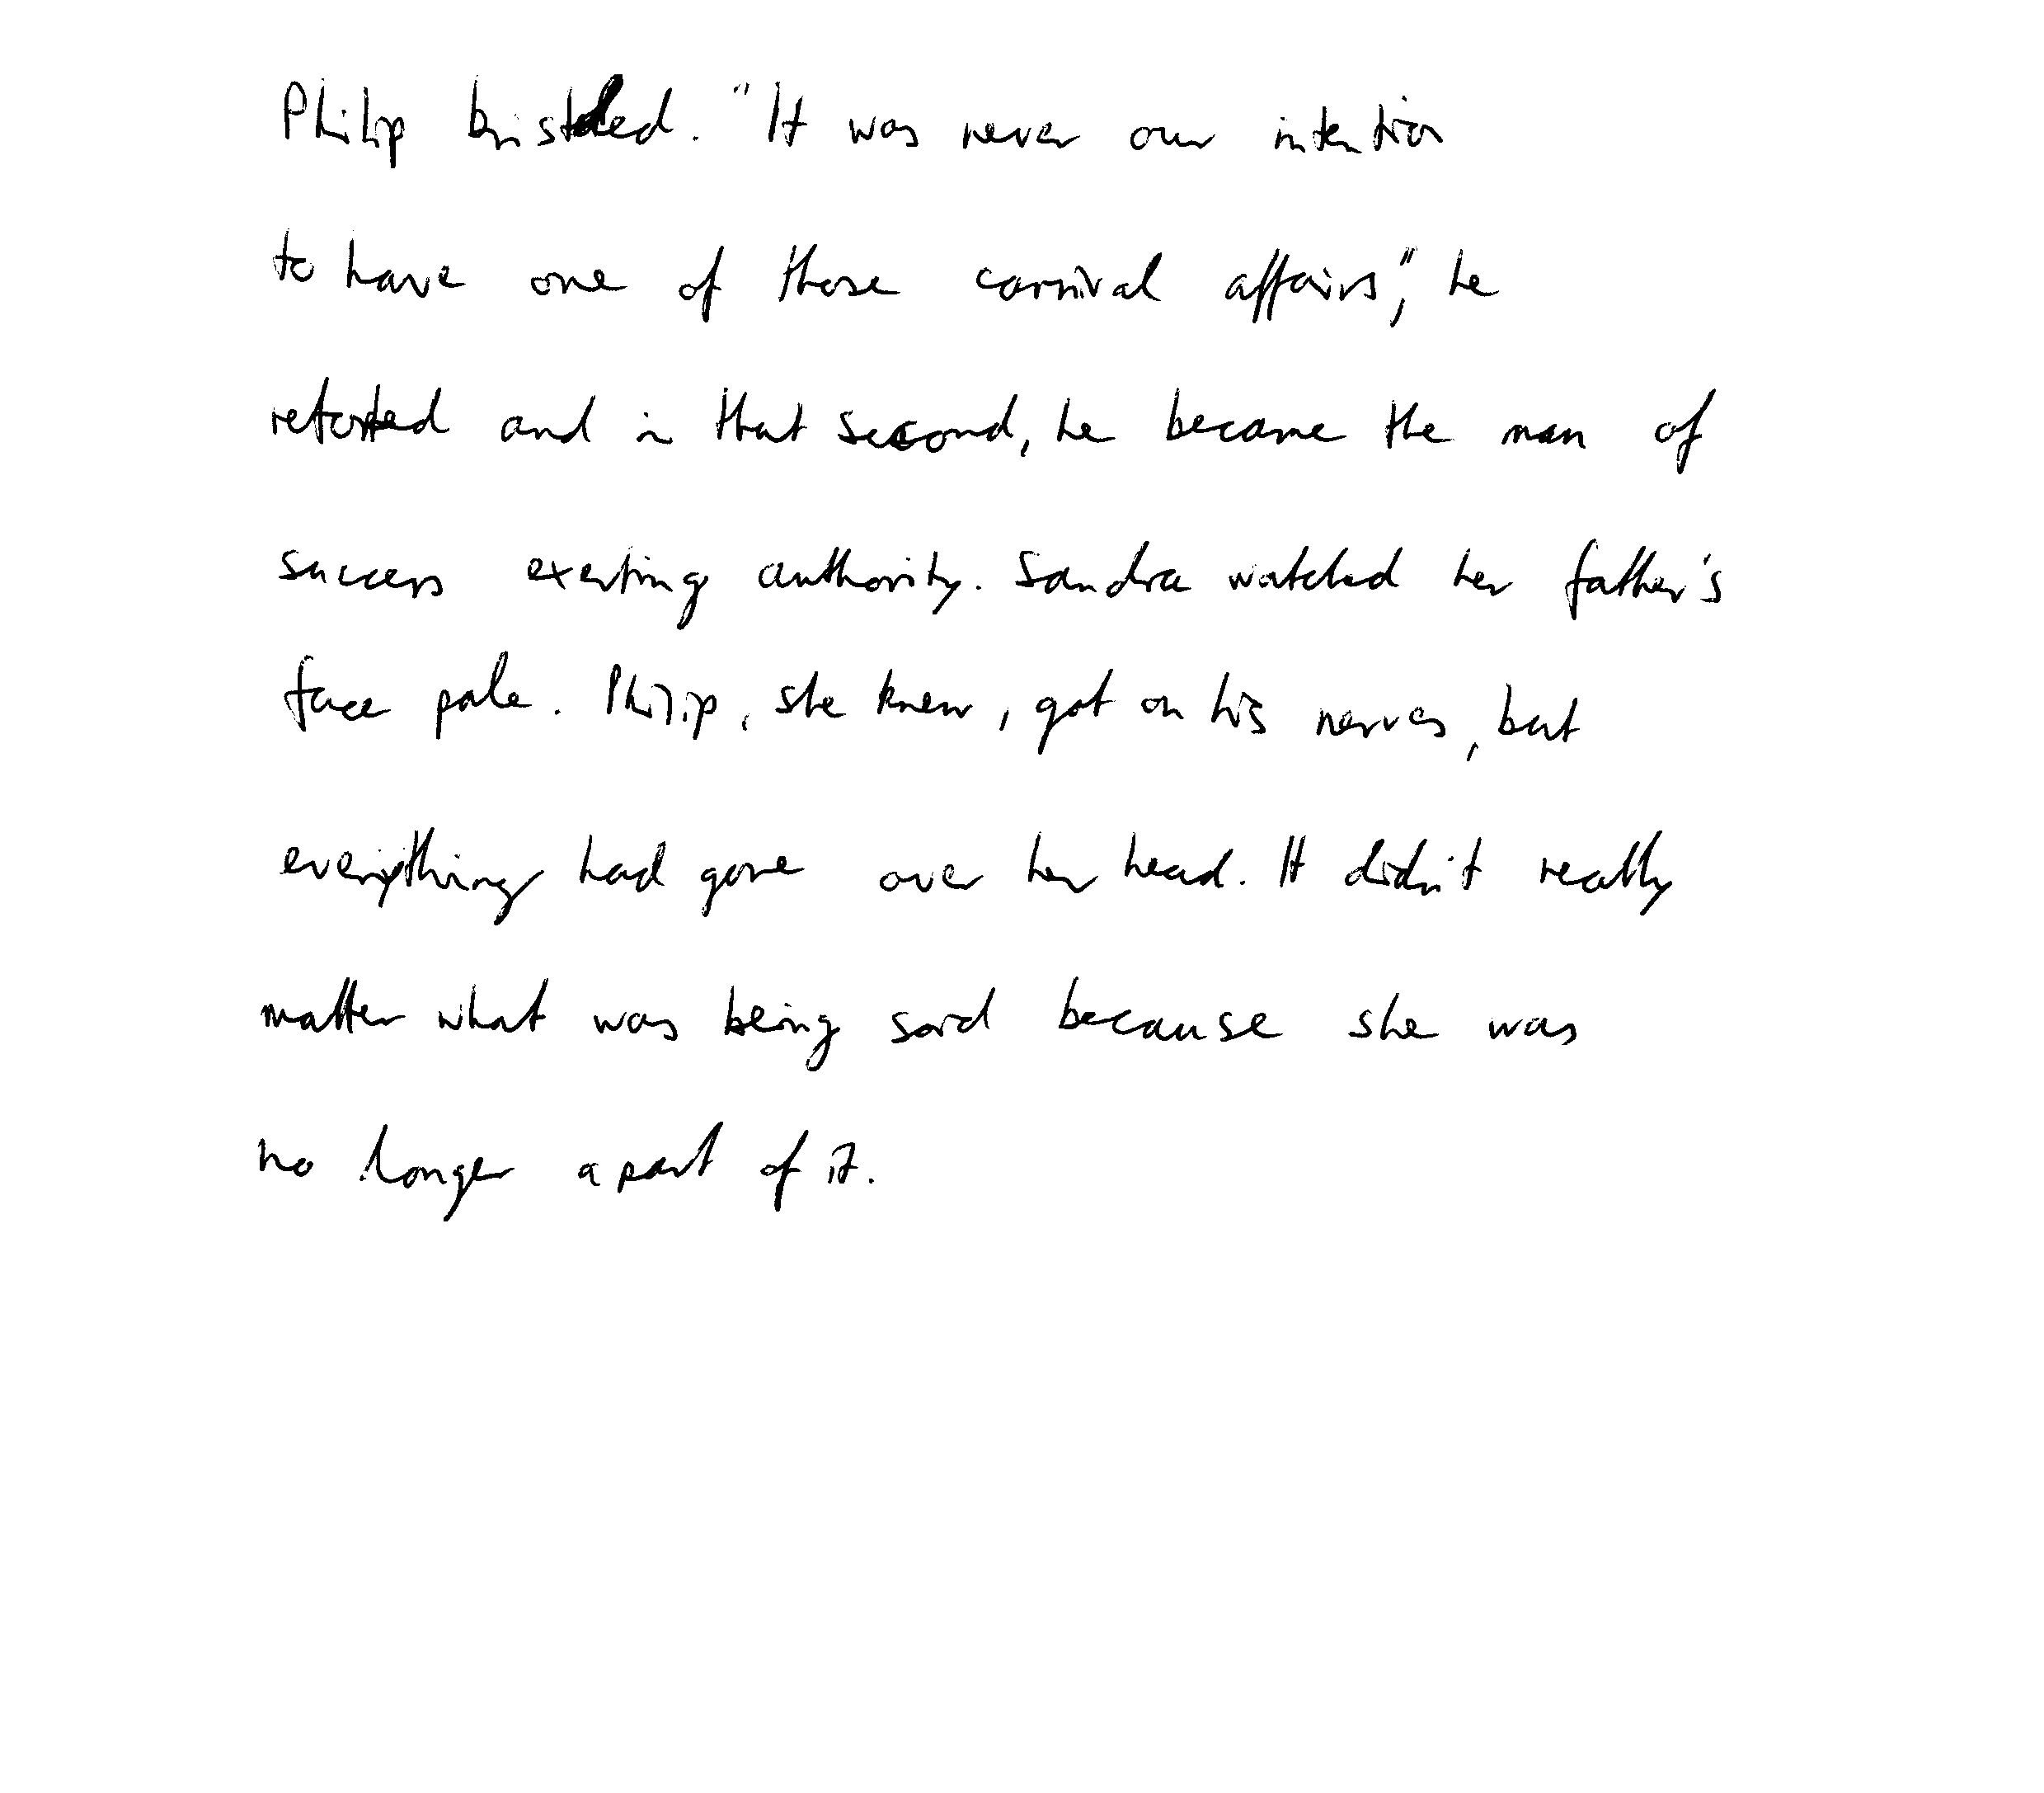 Philip bristled. "It was never our intention
to have one of those carnival affairs", he
retorted and in that second, he became the man of
success exerting authority. Sandra watched her father's
face pale. Philip, she knew, got on his nerves, but
everything had gone over her head. It didn't really
matter what was being said because she was
no longer a part of it.